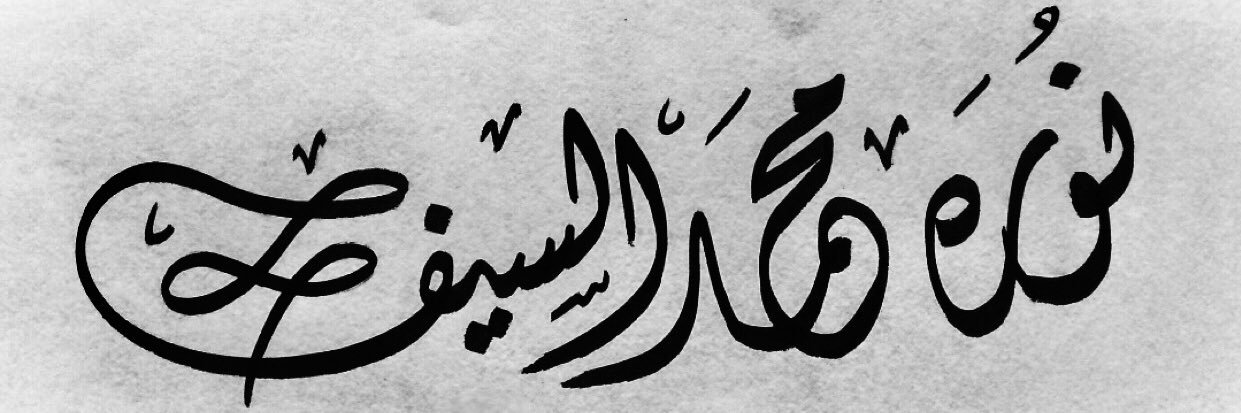 نُورَه محمَد السيف